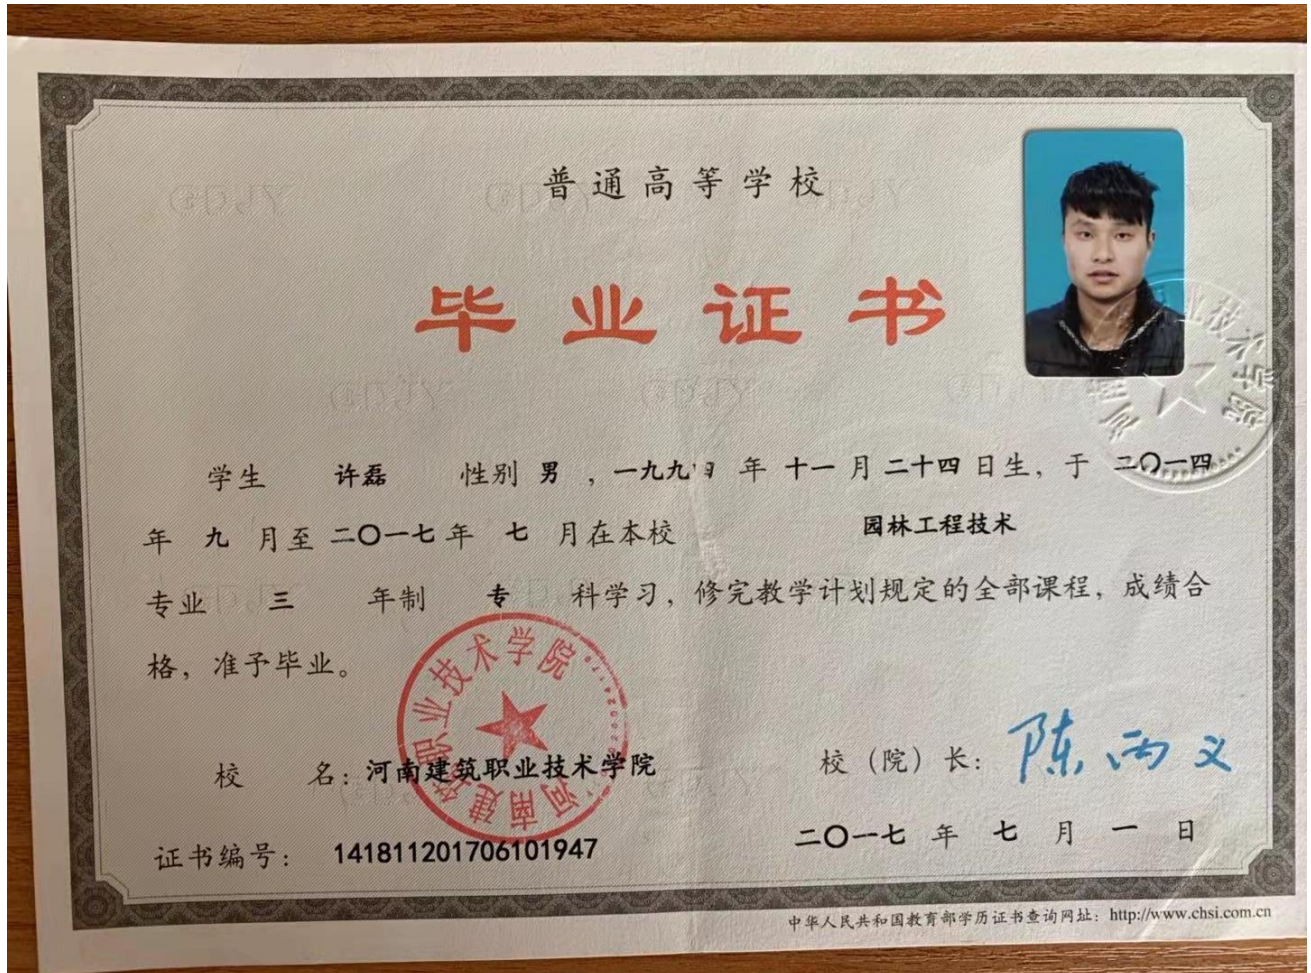 普通高等学校
毕业证书
学生 许磊 性别 男 ，一九九四 年 十一 月 二十四 日生，于 二〇一四
年 九 月至 二〇一七 年 七 月在本校 园林工程技术
专业 三 年制 专 科学习，修完教学计划规定的全部课程，成绩合
格，准予毕业。
河南建筑职业技术学院
校 名：河南建筑职业技术学院
校（院）长：陈雨义
证书编号： 141811201706101947
二〇一七 年 七 月 一 日
中华人民共和国教育部学历证书查询网址：http://www.chsi.com.cn